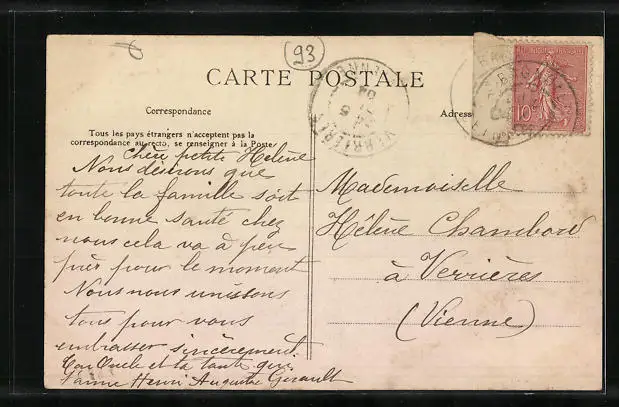 93
CARTE POSTALE
Correspondance
Adress
Tous les pays étrangers n'acceptent pas la
correspondance au recto, se renseigner à la Poste
VERRIÈRES
10
chère petite Hélène
Nous désirons que
toute la famille soit
en bonne santé chez
nous cela va à peu
près pour le moment
Nous nous unissons
tous pour vous
embrasser sincèrement.
Ton Oncle et ta tante qui
t'aime Henri Augustine Gérault
Mademoiselle
Hélène Chambord
à Verrières
(Vienne)